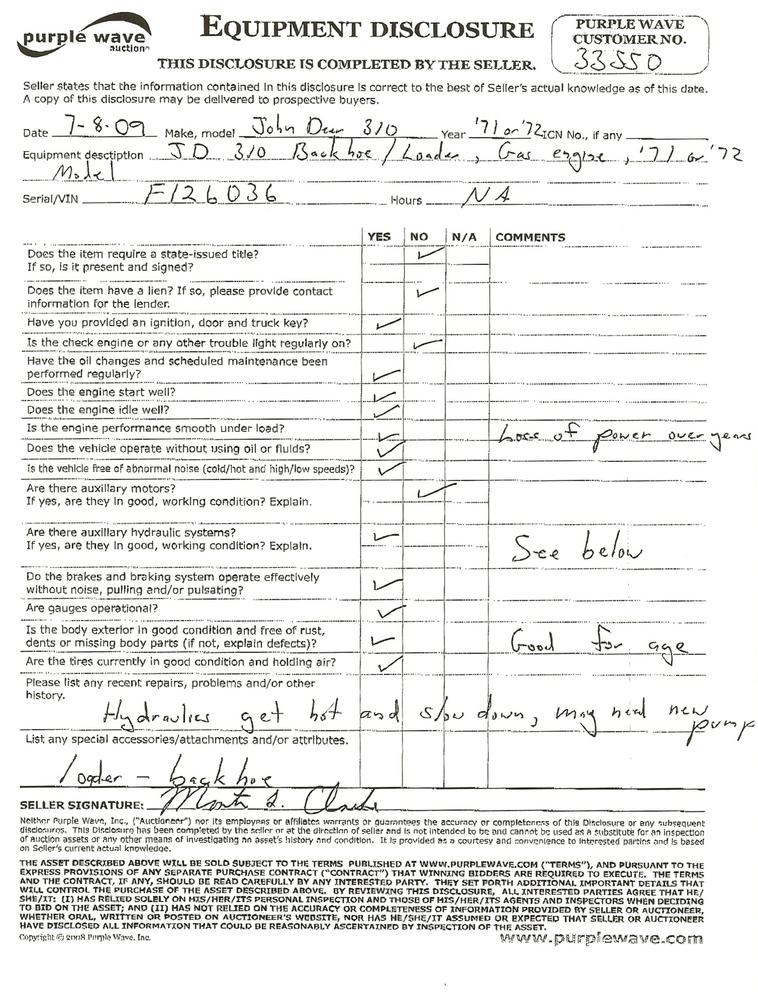 purple wave
auction™
EQUIPMENT DISCLOSURE
THIS DISCLOSURE IS COMPLETED BY THE SELLER.
PURPLE WAVE
CUSTOMER NO.
33550
Seller states that the information contained in this disclosure is correct to the best of Seller's actual knowledge as of this date.
A copy of this disclosure may be delivered to prospective buyers.
Date 7-8-09 Make, model John Deer 310 Year '71 or '72 ICN No., if any
Equipment desctiption JD 310 Backhoe/Loader, Gas engine, '71 or '72
Model
Serial/VIN F126036 Hours NA
YES NO N/A COMMENTS
Does the item require a state-issued title?
If so, is it present and signed?
Does the item have a lien? If so, please provide contact
information for the lender.
Have you provided an ignition, door and truck key?
Is the check engine or any other trouble light regularly on?
Have the oil changes and scheduled maintenance been
performed regularly?
Does the engine start well?
Does the engine idle well?
Is the engine performance smooth under load? Loss of power over years
Does the vehicle operate without using oil or fluids?
Is the vehicle free of abnormal noise (cold/hot and high/low speeds)?
Are there auxillary motors?
If yes, are they in good, working condition? Explain.
Are there auxillary hydraulic systems?
If yes, are they in good, working condition? Explain. See below
Do the brakes and braking system operate effectively
without noise, pulling and/or pulsating?
Are gauges operational?
Is the body exterior in good condition and free of rust,
dents or missing body parts (if not, explain defects)? Good for age
Are the tires currently in good condition and holding air?
Please list any recent repairs, problems and/or other
history.
Hydraulics get hot and slow down, may need new
pump
List any special accessories/attachments and/or attributes.
loader - backhoe
SELLER SIGNATURE:
Neither Purple Wave, Inc., ("Auctioneer") nor its employees or affiliates warrants or guarantees the accuracy or completeness of this Disclosure or any subsequent
disclosures. This Disclosure has been completed by the seller or at the direction of seller and is not intended to be and cannot be used as a substitute for an inspection
of auction assets or any other means of investigating an asset's history and condition. It is provided as a courtesy and convenience to interested parties and is based
on Seller's current actual knowledge.
THE ASSET DESCRIBED ABOVE WILL BE SOLD SUBJECT TO THE TERMS PUBLISHED AT WWW.PURPLEWAVE.COM ("TERMS"), AND PURSUANT TO THE
EXPRESS PROVISIONS OF ANY SEPARATE PURCHASE CONTRACT ("CONTRACT") THAT WINNING BIDDERS ARE REQUIRED TO EXECUTE. THE TERMS
AND THE CONTRACT, IF ANY, SHOULD BE READ CAREFULLY BY ANY INTERESTED PARTY. THEY SET FORTH ADDITIONAL IMPORTANT DETAILS THAT
WILL CONTROL THE PURCHASE OF THE ASSET DESCRIBED ABOVE. BY REVIEWING THIS DISCLOSURE, ALL INTERESTED PARTIES AGREE THAT HE/
SHE/IT: (I) HAS RELIED SOLELY ON HIS/HER/ITS PERSONAL INSPECTION AND THOSE OF HIS/HER/ITS AGENTS AND INSPECTORS WHEN DECIDING
TO BID ON THE ASSET; AND (II) HAS NOT RELIED ON THE ACCURACY OR COMPLETENESS OF INFORMATION PROVIDED BY SELLER OR AUCTIONEER,
WHETHER ORAL, WRITTEN OR POSTED ON AUCTIONEER'S WEBSITE, NOR HAS HE/SHE/IT ASSUMED OR EXPECTED THAT SELLER OR AUCTIONEER
HAVE DISCLOSED ALL INFORMATION THAT COULD BE REASONABLY ASCERTAINED BY INSPECTION OF THE ASSET.
Copyright © 2008 Purple Wave, Inc. www.purplewave.com